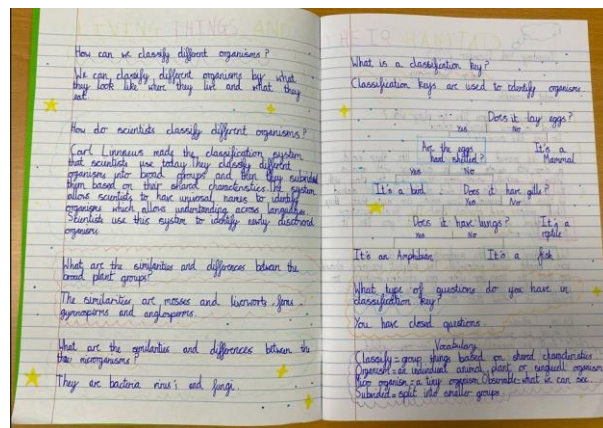 LIVING THINGS AND
THEIR HABITATS
How can we classify different organisms?
We can classify different organisms by what
they look like where they live and what they
eat.
How do scientists classify different organisms?
Carl Linnaeus made the classification system
that scientists use today. They classify different
organisms into broad groups and then they subdivided
them based on their shared characteristics. The system
allows scientists to have universal names to identify
organisms which allows understanding across languages
Scientists use this system to identify newly discovered
organisms.
What are the similarities and differences between the
broad plant groups?
The similarities are mosses and liverworts ferns
gymnosperms and angiosperms.
What are the similarities and differences between the
microorganisms?
They are bacteria virus's and fungi.
What is a classification key?
Classification keys are used to identify organisms
Does it lay eggs?
Yes No
Are the eggs
hard shelled?
It's a
Mammal
Yes No
It's a bird
Does it have gills?
Yes No
Does it have lungs?
It's a
reptile
Yes No
It's an Amphibian
It's a fish
What type of questions do you have in
classification key?
You have closed questions.
Vocabulary
Classify = group things based on shared characteristics.
Organism = an individual animal plant or singlecell organism
Micro organism = a tiny organism Observable = what we can see.
= split into smaller groups.